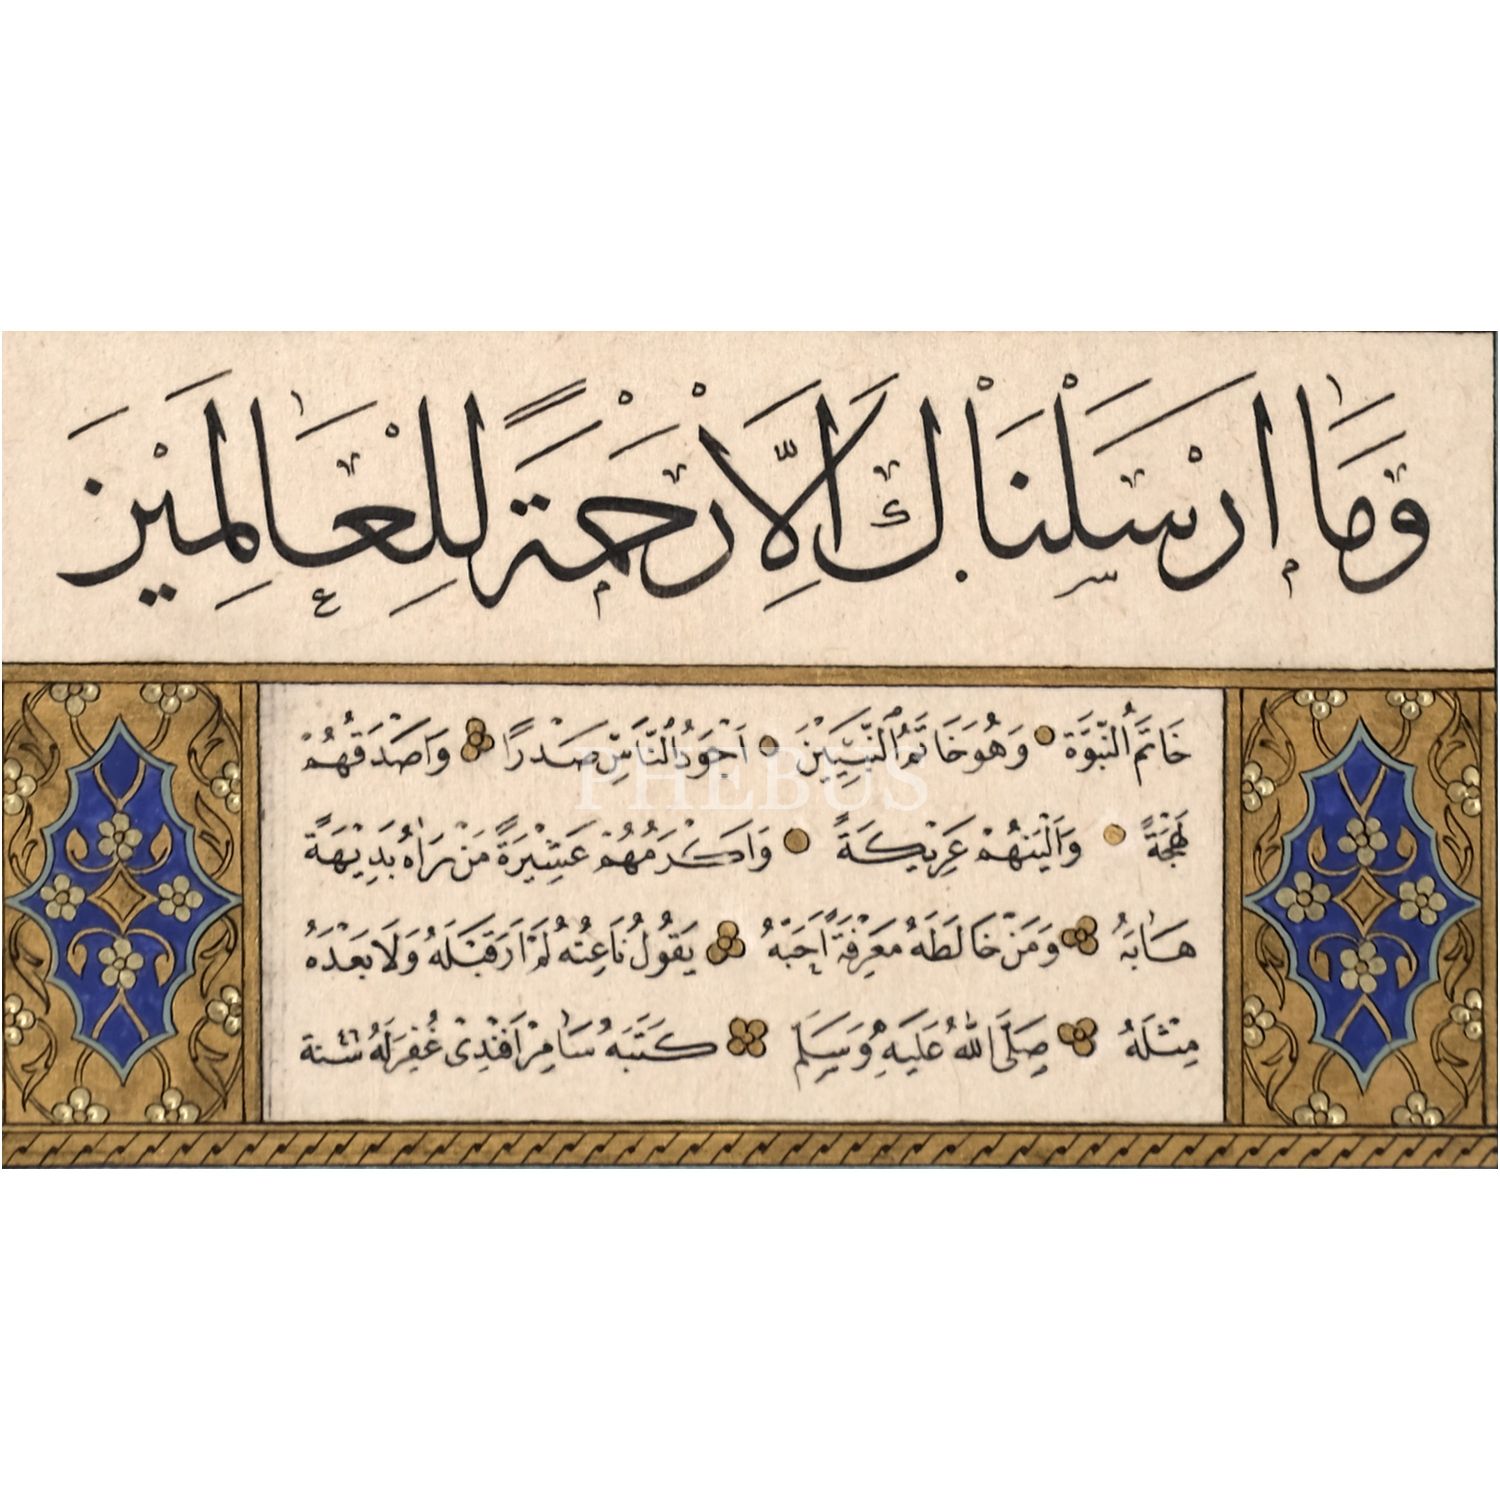 وَمَا اَرْسَلْنَاكَ اِلَّا رَحْمَةً لِلْعَالَمِيْنَ
خَاتَمُ النُّبُوَّةِ وَهُوَ خَاتَمُ النَّبِيِّيْنَ اَجْوَدُ النَّاسِ صَدْرًا وَاَصْدَقُهُمْ
لَهْجَةً وَاَلْيَنُهُمْ عَرِيْكَةً وَاَكْرَمُهُمْ عَشِيْرَةً مَنْ رَاٰهُ بَدِيْهَةً
هَابَهُ وَمَنْ خَالَطَهُ مَعْرِفَةً اَحَبَّهُ يَقُولُ نَاعِتُهُ لَمْ اَرَ قَبْلَهُ وَلَا بَعْدَهُ
مِثْلَهُ صَلَّى اللهُ عَلَيْهِ وَسَلَّمَ كَتَبَهُ سَامِرْ اَفَنْدِى غُفِرَلَهُ سنة
PHEBUS